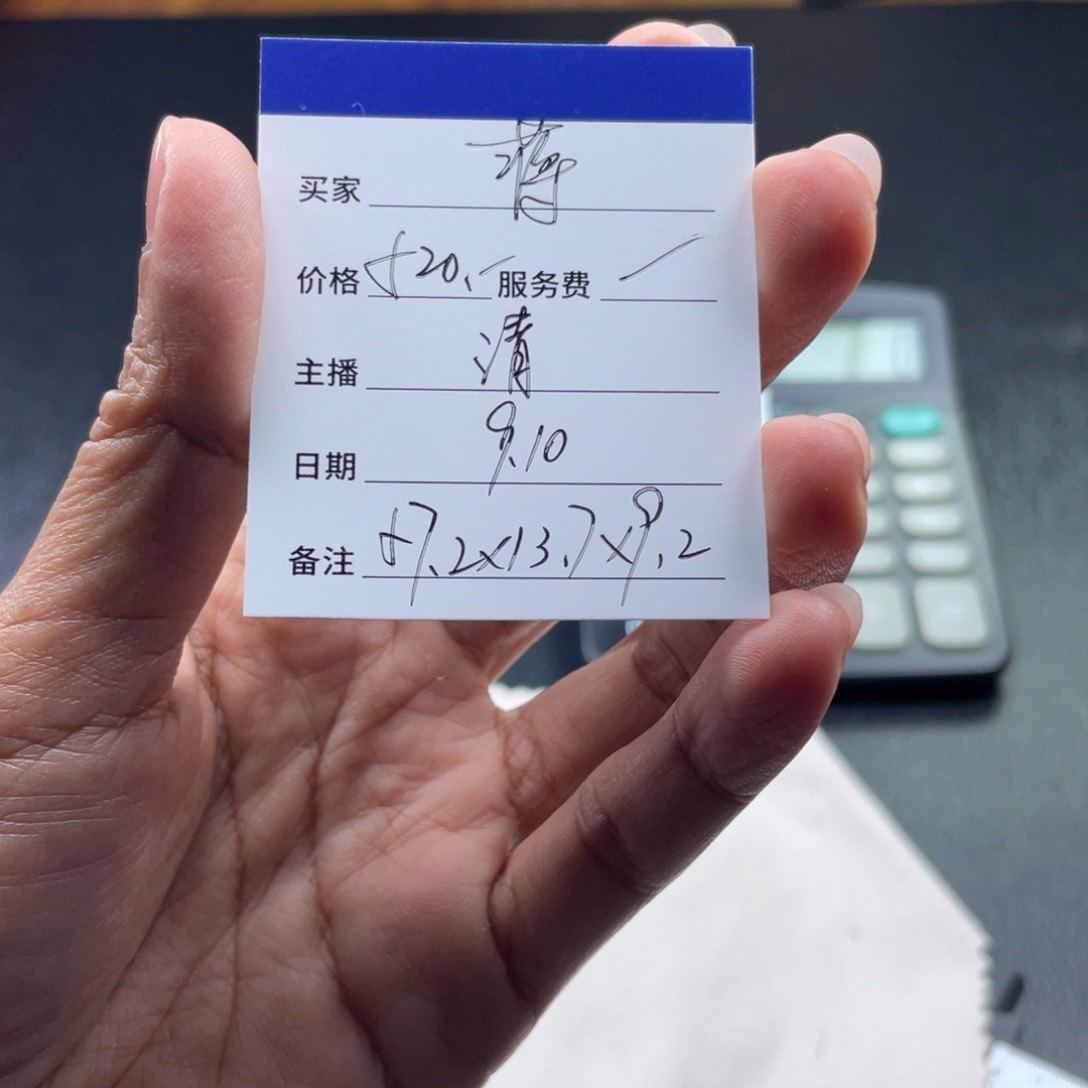 买家 蒋
价格 520.- 服务费 /
主播 清
日期 9.10
备注 57.2x13.7x9.2